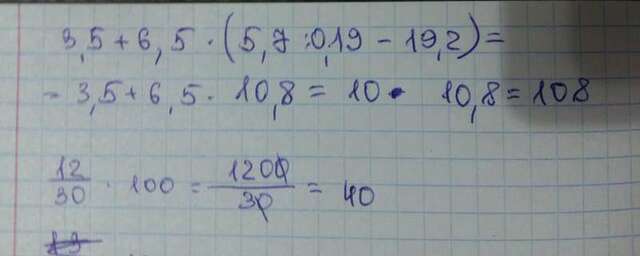 3,5 + 6,5 · (5,7 : 0,19 − 19,2) =
= 3,5 + 6,5 · 10,8 = 10 · 10,8 = 108
12/30 · 100 = 1200/30 = 40